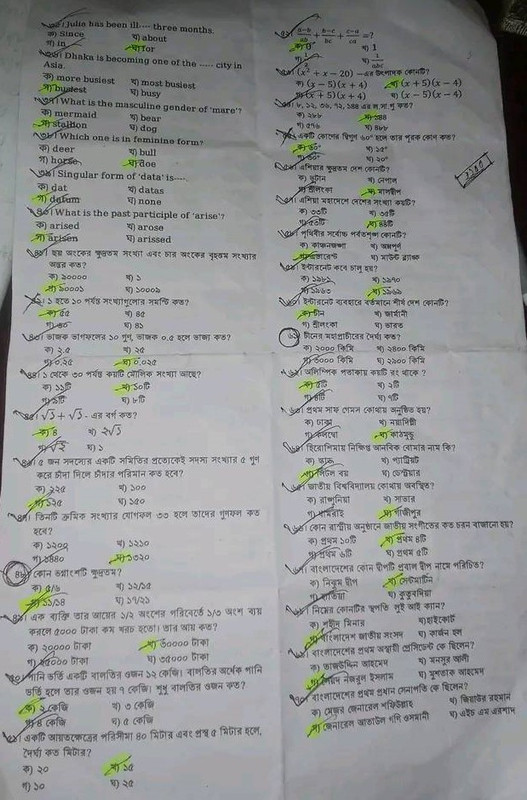 ৩৫। Julie has been ill.... three months.
ক) Since খ) about
গ) in ঘ) for
৩৬। Dhaka is becoming one of the ..... city in
Asia.
ক) more busiest খ) most busiest
গ) busiest ঘ) busy
৩৭। What is the masculine gender of 'mare'?
ক) mermaid খ) bear
গ) stallion ঘ) dog
৩৮। Which one is in feminine form?
ক) deer খ) bull
গ) horse ঘ) doe
৩৯। Singular form of 'data' is.....
ক) dat খ) datas
গ) datum ঘ) none
৪০। What is the past participle of 'arise'?
ক) arised খ) arose
গ) arisen ঘ) arissed
৪১। ছয় অংকের ক্ষুদ্রতম সংখ্যা এবং চার অংকের বৃহত্তম সংখ্যার
অন্তর কত?
ক) ৯০০০০ খ) ১
গ) ৯০০০১ ঘ) ১০০০৯
৪২। ১ হতে ১০ পর্যন্ত সংখ্যাগুলোর সমষ্টি কত?
ক) ৫৫ খ) ৪৫
গ) ৩০ ঘ) ৪১
৪৩। ভাজক ভাগফলের ১০ গুণ, ভাজক ০.৫ হলে ভাজ্য কত?
ক) ২.৫ খ) ২৫
গ) ০.২৫ ঘ) ০.০২৫
৪৪। ১ থেকে ৩০ পর্যন্ত কয়টি মৌলিক সংখ্যা আছে?
ক) ১১টি খ) ১০টি
গ) ৯টি ঘ) ৮টি
৪৫। √3 + √3 - এর বর্গ কত?
খ) 2√3
গ) √2 ঘ) ১
৪৬। ৫ জন সদস্যের একটি সমিতির প্রত্যেকেই সদস্য সংখ্যার ৫ গুণ
করে চাঁদা দিলে চাঁদার পরিমান কত হবে?
ক) ২২৫ খ) ১০০
গ) ১২৫ ঘ) ১৫০
৪৭। তিনটি ক্রমিক সংখ্যার যোগফল ৩৩ হলে তাদের গুণফল কত
হবে?
ক) ১২০০ খ) ১২১০
গ) ১৪৪০ ঘ) ১৩২০
৪৮। কোন ভগ্নাংশটি ক্ষুদ্রতম?
ক) ৫/৬ খ) ১২/১৫
গ) ১১/১৪ ঘ) ১৭/২১
৪৯। এক ব্যক্তি তার আয়ের ১/২ অংশের পরিবর্তে ১/৩ অংশ ব্যয়
করলে ৫০০০ টাকা কম খরচ হতো। তার আয় কত?
ক) ২০০০০ টাকা খ) ৩০০০০ টাকা
গ) ২৫০০০ টাকা ঘ) ৩৫০০০ টাকা
৫০। পানি ভর্তি একটি বালতির ওজন ১২ কেজি। বালতির অর্ধেক পানি
ভর্তি হলে তার ওজন হয় ৭ কেজি। শুধু বালতির ওজন কত?
ক) ২ কেজি খ) ৩ কেজি
গ) ৪ কেজি ঘ) ৫ কেজি
৫১। একটি আয়তক্ষেত্রের পরিসীমা ৪০ মিটার এবং প্রস্থ ৫ মিটার হলে,
দৈর্ঘ্য কত মিটার?
ক) ২০ খ) ১৫
গ) ১০ ঘ) ২৫
৫২। a-b/ab + b-c/bc + c-a/ca =?
ক) 0 খ) 1
ঘ) 1/abc
৫৩। (x² + x - 20) -এর উৎপাদক কোনটি?
ক) (x - 5)(x + 4) খ) (x + 5)(x - 4)
গ) (x + 5)(x + 4) ঘ) (x - 5)(x - 4)
৫৪। ৮, ১২, ৩৬, ৭২, ১৪৪ এর ল.সা.গু কত?
ক) ২৮৮ খ) ১৪৪
গ) ৫৭৬ ঘ) ৪৮৮
৫৫। একটি কোণের দ্বিগুণ ৬০° হলে তার পূরক কোণ কত?
ক) ৬০° খ) ১৫°
গ) ৩০° ঘ) ২০°
৫৬। এশিয়ার ক্ষুদ্রতম দেশ কোনটি?
ক) ভুটান খ) নেপাল
গ) শ্রীলংকা ঘ) মালদ্বীপ
৫৭। এশিয়া মহাদেশে দেশের সংখ্যা কয়টি?
ক) ৩৩টি খ) ৩৫টি
ঘ) ৪৪টি
৫৮। পৃথিবীর সর্বোচ্চ পর্বতশৃঙ্গ কোনটি?
ক) কাঞ্চনজঙ্ঘা খ) অন্নপূর্ণ
গ) এভারেস্ট ঘ) মাউন্ট ব্ল্যাঙ্ক
৫৯। ইন্টারনেট কবে চালু হয়?
খ) ১৯৭০
গ) ১৯৬৩ ঘ) ১৯৬৯
৬০। ইন্টারনেট ব্যবহারে বর্তমানে শীর্ষ দেশ কোনটি?
ক) চীন খ) জার্মানী
গ) শ্রীলংকা ঘ) ভারত
৬১। চীনের মহাপ্রাচীরের দৈর্ঘ্য কত?
ক) ২০০০ কিমি খ) ২৪০০ কিমি
গ) ৩০০০ কিমি ঘ) ২৯০০ কিমি
৬২। অলিম্পিক পতাকায় কয়টি রং থাকে ?
ক) ৫টি খ) ২টি
গ) ৪টি ঘ) ৭টি
৬৩। প্রথম সাফ গেমস কোথায় অনুষ্ঠিত হয়?
ক) ঢাকা খ) নয়াদিল্লী
গ) কলম্বো ঘ) কাঠমুন্ডু
৬৪। হিরোশিমায় নিক্ষিপ্ত আনবিক বোমার নাম কি?
খ) প্যাট্রিয়ট
গ) লিটল বয় ঘ) চেস্টার
৬৫। জাতীয় বিশ্ববিদ্যালয় কোথায় অবস্থিত?
খ) সাভার
গ) ধামরাই ঘ) গাজীপুর
৬৬। কোন রাষ্ট্রীয় অনুষ্ঠানে জাতীয় সংগীতের কত চরন বাজানো হয়?
ক) প্রথম ১০টি খ) প্রথম ৪টি
গ) প্রথম ৬টি ঘ) প্রথম ৫টি
৬৭। বাংলাদেশের কোন দ্বীপটি প্রবাল দ্বীপ নামে পরিচিত?
ক) নিঝুম দ্বীপ খ) সেন্টমার্টিন
গ) হাতিয়া ঘ) কুতুবদিয়া
৬৮। নিম্নের কোনটির স্থপতি লুই আই ক্যান?
ক) শহীদ মিনার খ) হাইকোর্ট
গ) বাংলাদেশ জাতীয় সংসদ ঘ) কার্জন হল
৬৯। বাংলাদেশের প্রথম অস্থায়ী প্রেসিডেন্ট কে ছিলেন?
ক) তাজউদ্দিন আহমেদ খ) মনসুর আলী
গ) সৈয়দ নজরুল ইসলাম ঘ) মুশতাক আহমেদ
৭০। বাংলাদেশের প্রথম প্রধান সেনাপতি কে ছিলেন?
ক) মেজর জেনারেল শফিউল্লাহ খ) জিয়াউর রহমান
গ) জেনারেল আতাউল গণি ওসমানী ঘ) এইচ এম এরশাদ